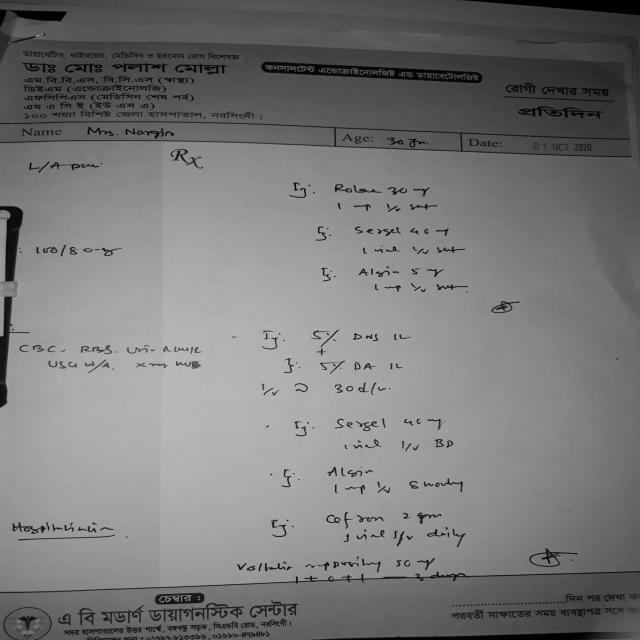 ডায়াবেটিস, থাইরয়েড, মেডিসিন ও হরমোন রোগ বিশেষজ্ঞ
ডাঃ মোঃ পলাশ মোল্লা
এম.বি.বি.এস, বি.সি.এস (স্বাস্থ্য)
ডিইএম (এন্ডোক্রাইনোলজি)
এফসিপিএস (মেডিসিন শেষ পর্ব)
এম এ সি ই (ইউ এস এ)
১০০ শয্যা বিশিষ্ট জেলা হাসপাতাল, নরসিংদী।
কনসালটেন্ট এন্ডোক্রাইনোলজিষ্ট এন্ড ডায়াবেটোলজিষ্ট
রোগী দেখার সময়
প্রতিদিন
Name Mrs. Nargis Age: 30 yrs. Date: 01 OCT 2020
L/A
Rx
Inj. Rolac 30 mg
1 amp I/V stat
Inj. Sergel 40 mg
1 vial I/V stat
100/80
Inj. Algin 5 mg
1 amp I/V stat.
Inj. 5% DNS 1L
+
Inj. 5% DA 1L
I/V 30 d/m.
CBC. RBS. Urine R/M/E
USG W/A.
Inj. Sergel 40 mg
1 vial I/V BD
Inj. Algin
1 amp I/V 8 hourly
Inj. Cefron 2 gm
1 vial I/V daily
Voltalin suppository 50 mg
1 + 0 + 1 — 3 days
চেম্বার :
এ বি মডার্ণ ডায়াগনস্টিক সেন্টার
সদর হাসপাতালের উত্তর পার্শ্বে, বঙ্গবন্ধু সড়ক, সিএন্ডবি রোড, নরসিংদী।
দিন পর দেখা
পরবর্তী সাক্ষাতের সময় ব্যবস্থাপত্র সঙ্গে